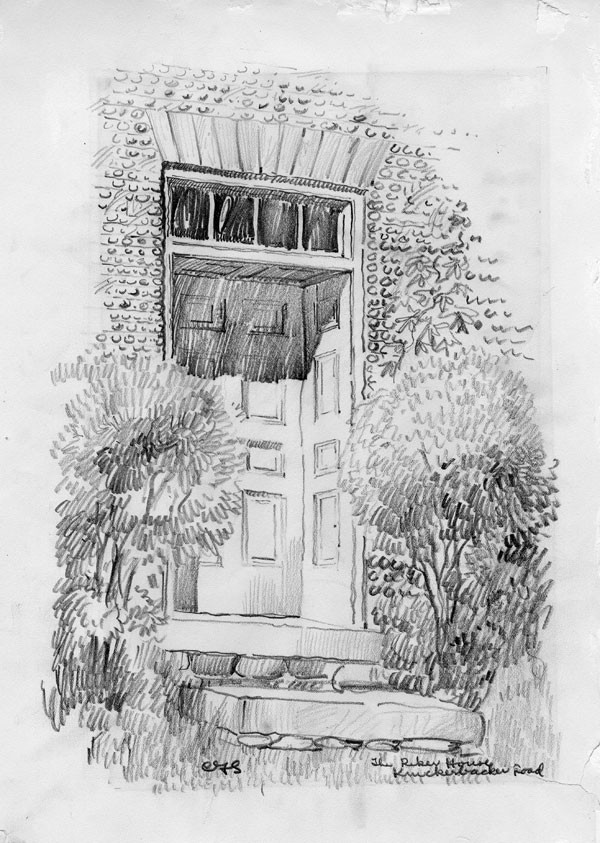 The Riker House
Knickerbacker Road